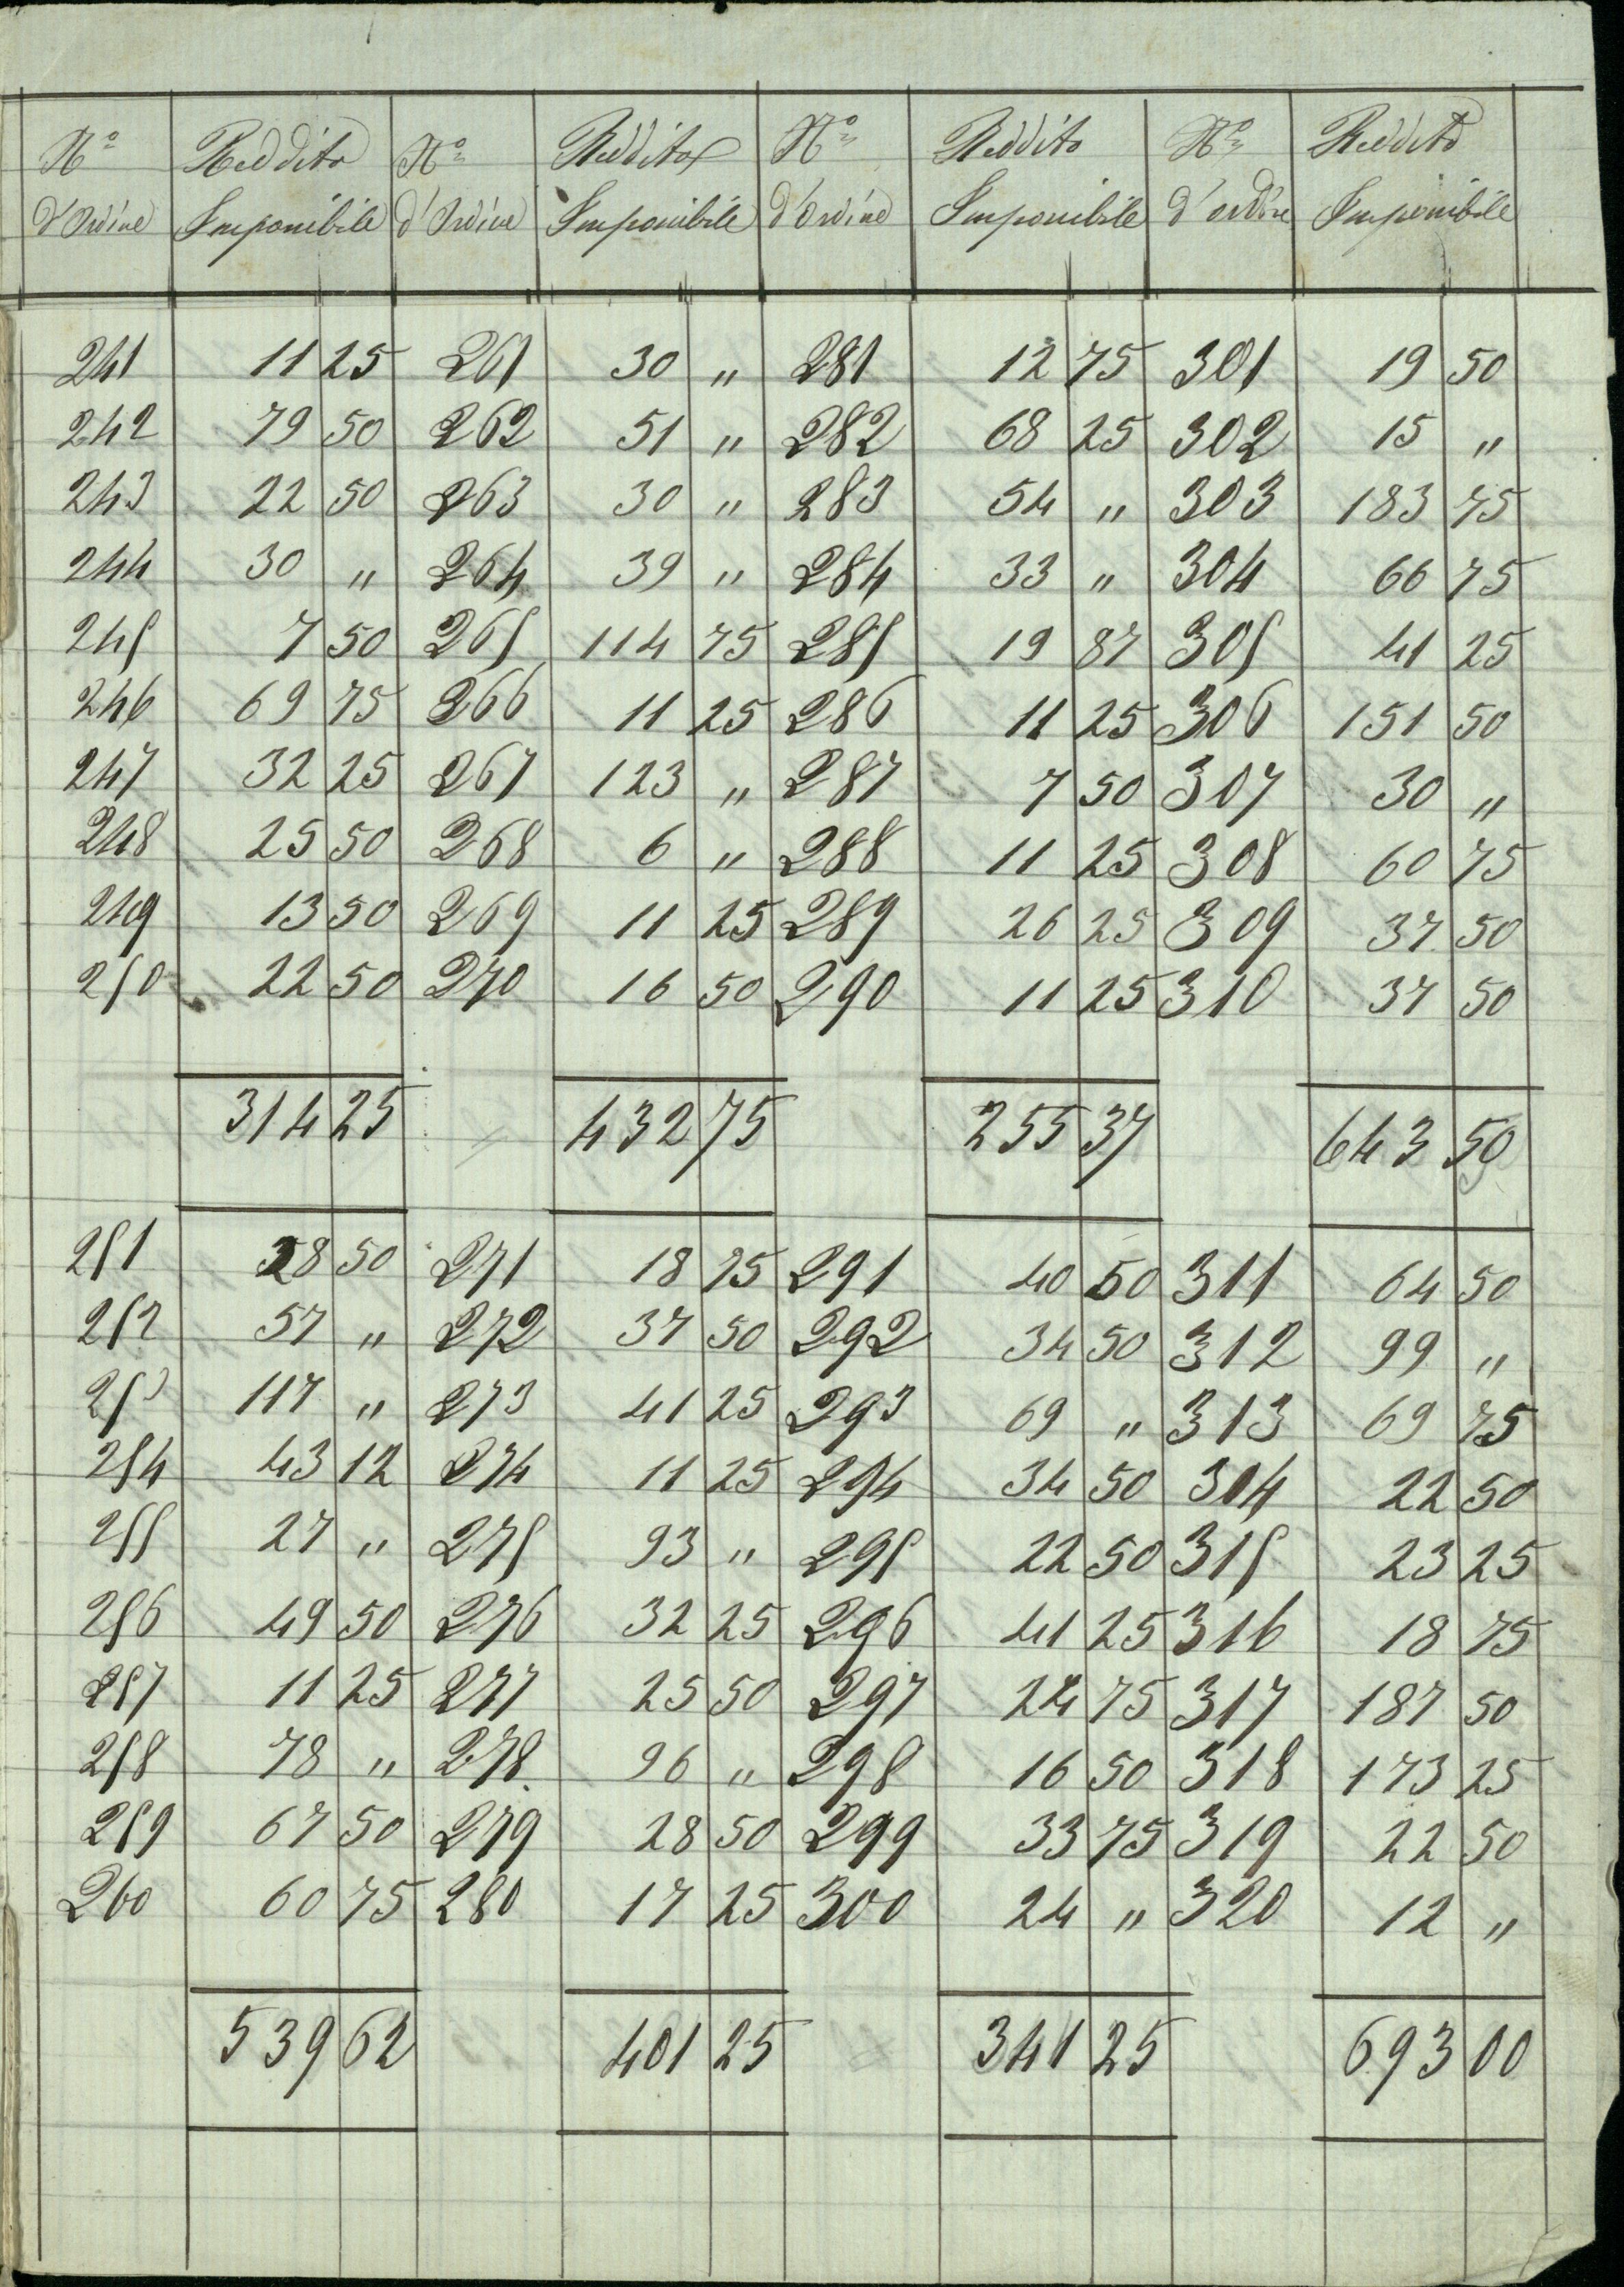 Nº Reddito Nº Reddito Nº Reddito Nº Reddito
d'Ordine Imponibile d'Ordine Imponibile d'Ordine Imponibile d'ordine Imponibile
241 11 25 261 30 " 281 12 75 301 19 50
242 79 50 262 51 " 282 68 25 302 15 "
243 22 50 263 30 " 283 54 " 303 183 75
244 30 " 264 39 " 284 33 " 304 66 75
245 7 50 265 114 75 285 19 87 305 41 25
246 69 75 266 11 25 286 11 25 306 151 50
247 32 25 267 123 " 287 7 50 307 30 "
248 25 50 268 6 " 288 11 25 308 60 75
249 13 50 269 11 25 289 26 25 309 37 50
250 22 50 270 16 50 290 11 25 310 37 50
314 25 432 75 255 37 643 50
251 28 50 271 18 75 291 40 50 311 64 50
252 57 " 272 37 50 292 34 50 312 99 "
253 117 " 273 41 25 293 69 " 313 69 75
254 43 12 274 11 25 294 34 50 314 22 50
255 27 " 275 93 " 295 22 50 315 23 25
256 49 50 276 32 25 296 41 25 316 18 75
257 11 25 277 25 50 297 24 75 317 187 50
258 78 " 278 96 " 298 16 50 318 173 25
259 67 50 279 28 50 299 33 75 319 22 50
260 60 75 280 17 25 300 24 " 320 12 "
539 62 401 25 341 25 693 00